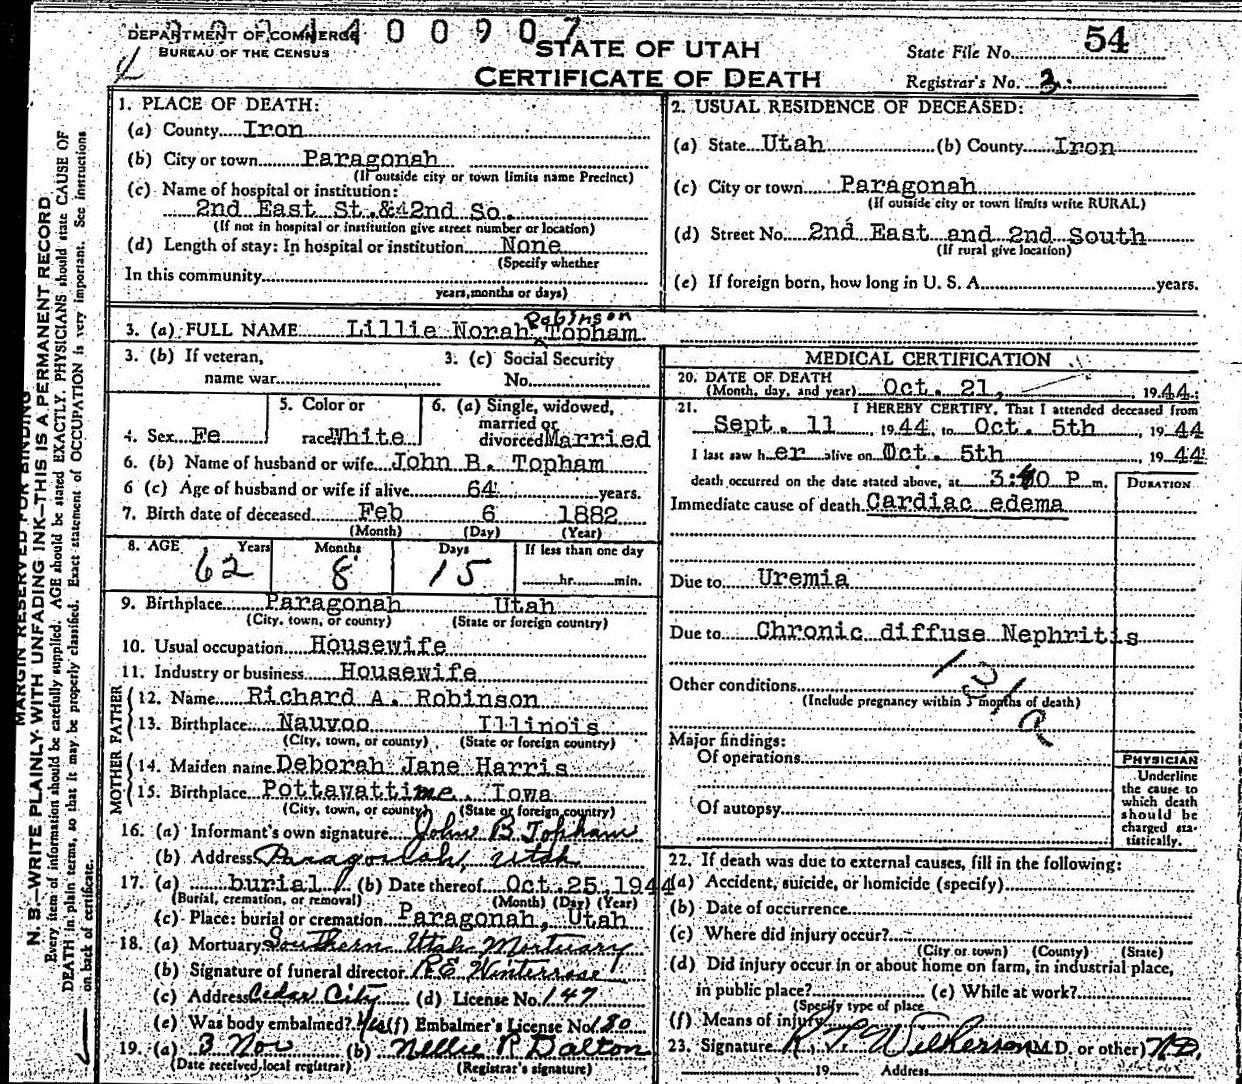 DEPARTMENT OF COMMERCE
BUREAU OF THE CENSUS
4 0 0 9 0 7
STATE OF UTAH
CERTIFICATE OF DEATH
State File No. 54
Registrar's No. 3
MARGIN RESERVED FOR BINDING
N. B.—WRITE PLAINLY WITH UNFADING INK—THIS IS A PERMANENT RECORD
Every item of information should be carefully supplied. AGE should be stated EXACTLY. PHYSICIANS should state CAUSE OF
DEATH in plain terms, so that it may be properly classified. Exact statement of OCCUPATION is very important. See instructions
on back of certificate.
1. PLACE OF DEATH:
(a) County Iron
(b) City or town Paragonah
(If outside city or town limits name Precinct)
(c) Name of hospital or institution:
2nd East St.&42nd So.
(If not in hospital or institution give street number or location)
(d) Length of stay: In hospital or institution None
(Specify whether
In this community
years, months or days)
2. USUAL RESIDENCE OF DECEASED:
(a) State Utah (b) County Iron
(c) City or town Paragonah
(If outside city or town limits write RURAL)
(d) Street No. 2nd East and 2nd South
(If rural give location)
(e) If foreign born, how long in U. S. A. years.
Robinson
3. (a) FULL NAME Lillie Norah Topham
3. (b) If veteran,
name war
3. (c) Social Security
No.
4. Sex Fe
5. Color or
race White
6. (a) Single, widowed,
married or
divorced Married
6. (b) Name of husband or wife John B. Topham
6 (c) Age of husband or wife if alive 64 years.
7. Birth date of deceased Feb 6 1882
(Month) (Day) (Year)
8. AGE Years Months Days If less than one day
62 8 15 hr. min.
9. Birthplace Paragonah Utah
(City, town, or county) (State or foreign country)
10. Usual occupation Housewife
11. Industry or business Housewife
FATHER
12. Name Richard A. Robinson
13. Birthplace Nauvoo Illinois
(City, town, or county) (State or foreign country)
MOTHER
14. Maiden name Deborah Jane Harris
15. Birthplace Pottawattime Iowa
(City, town, or county) (State or foreign country)
16. (a) Informant's own signature John B Topham
(b) Address Paragonah, Utah
17. (a) burial (b) Date thereof Oct. 25, 1944
(Burial, cremation, or removal) (Month) (Day) (Year)
(c) Place: burial or cremation Paragonah, Utah
18. (a) Mortuary Southern Utah Mortuary
(b) Signature of funeral director R.E. Winterrose
(c) Address Cedar City (d) License No. 147
(e) Was body embalmed? Yes (f) Embalmer's License No. 180
19. (a) 3 Nov (b) Nellie P. Dalton
(Date received local registrar) (Registrar's signature)
MEDICAL CERTIFICATION
20. DATE OF DEATH
(Month, day, and year) Oct. 21, 1944
21. I HEREBY CERTIFY, That I attended deceased from
Sept. 11, 1944, to Oct. 5th, 1944
I last saw her alive on Oct. 5th 1944
death occurred on the date stated above, at 3:40 P m.
DURATION
Immediate cause of death Cardiac edema
Due to Uremia
Due to Chronic diffuse Nephritis
131a
Other conditions
(Include pregnancy within 3 months of death)
Major findings:
Of operations
Of autopsy
PHYSICIAN
Underline
the cause to
which death
should be
charged sta-
tistically.
22. If death was due to external causes, fill in the following:
(a) Accident, suicide, or homicide (specify)
(b) Date of occurrence
(c) Where did injury occur?
(City or town) (County) (State)
(d) Did injury occur in or about home on farm, in industrial place,
in public place? (e) While at work?
(Specify type of place
(f) Means of injury
23. Signature Wilkerson (M.D. or other) M.D.
19 Address